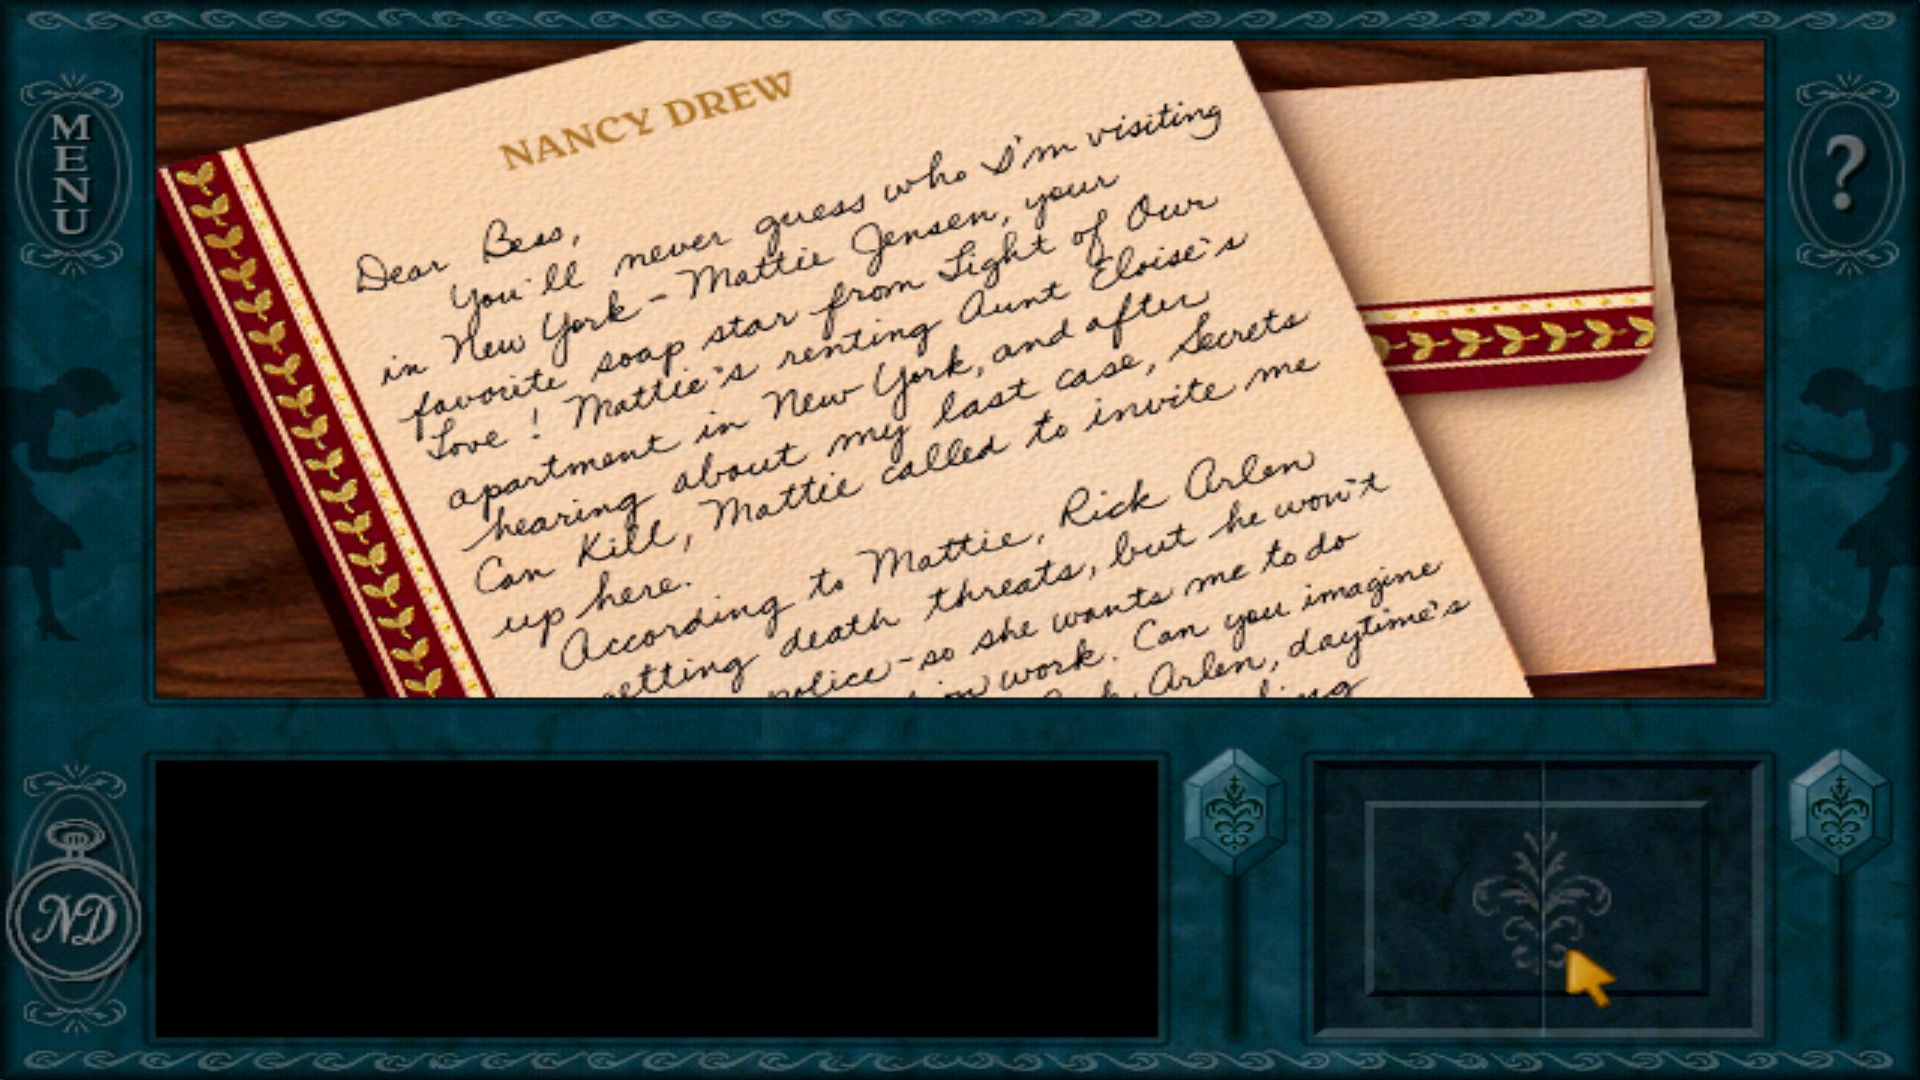 NANCY DREW
Dear Bess,
You'll never guess who I'm visiting
in New York - Mattie Jensen, your
favorite soap star from Light of Our
Love! Mattie's renting Aunt Eloise's
apartment in New York, and after
hearing about my last case, Secrets
Can Kill, Mattie called to invite me
up here.
According to Mattie, Rick Arlen
getting death threats, but he won't
police - so she wants me to do
work. Can you imagine
Arlen, daytime's
MENU
?
ND